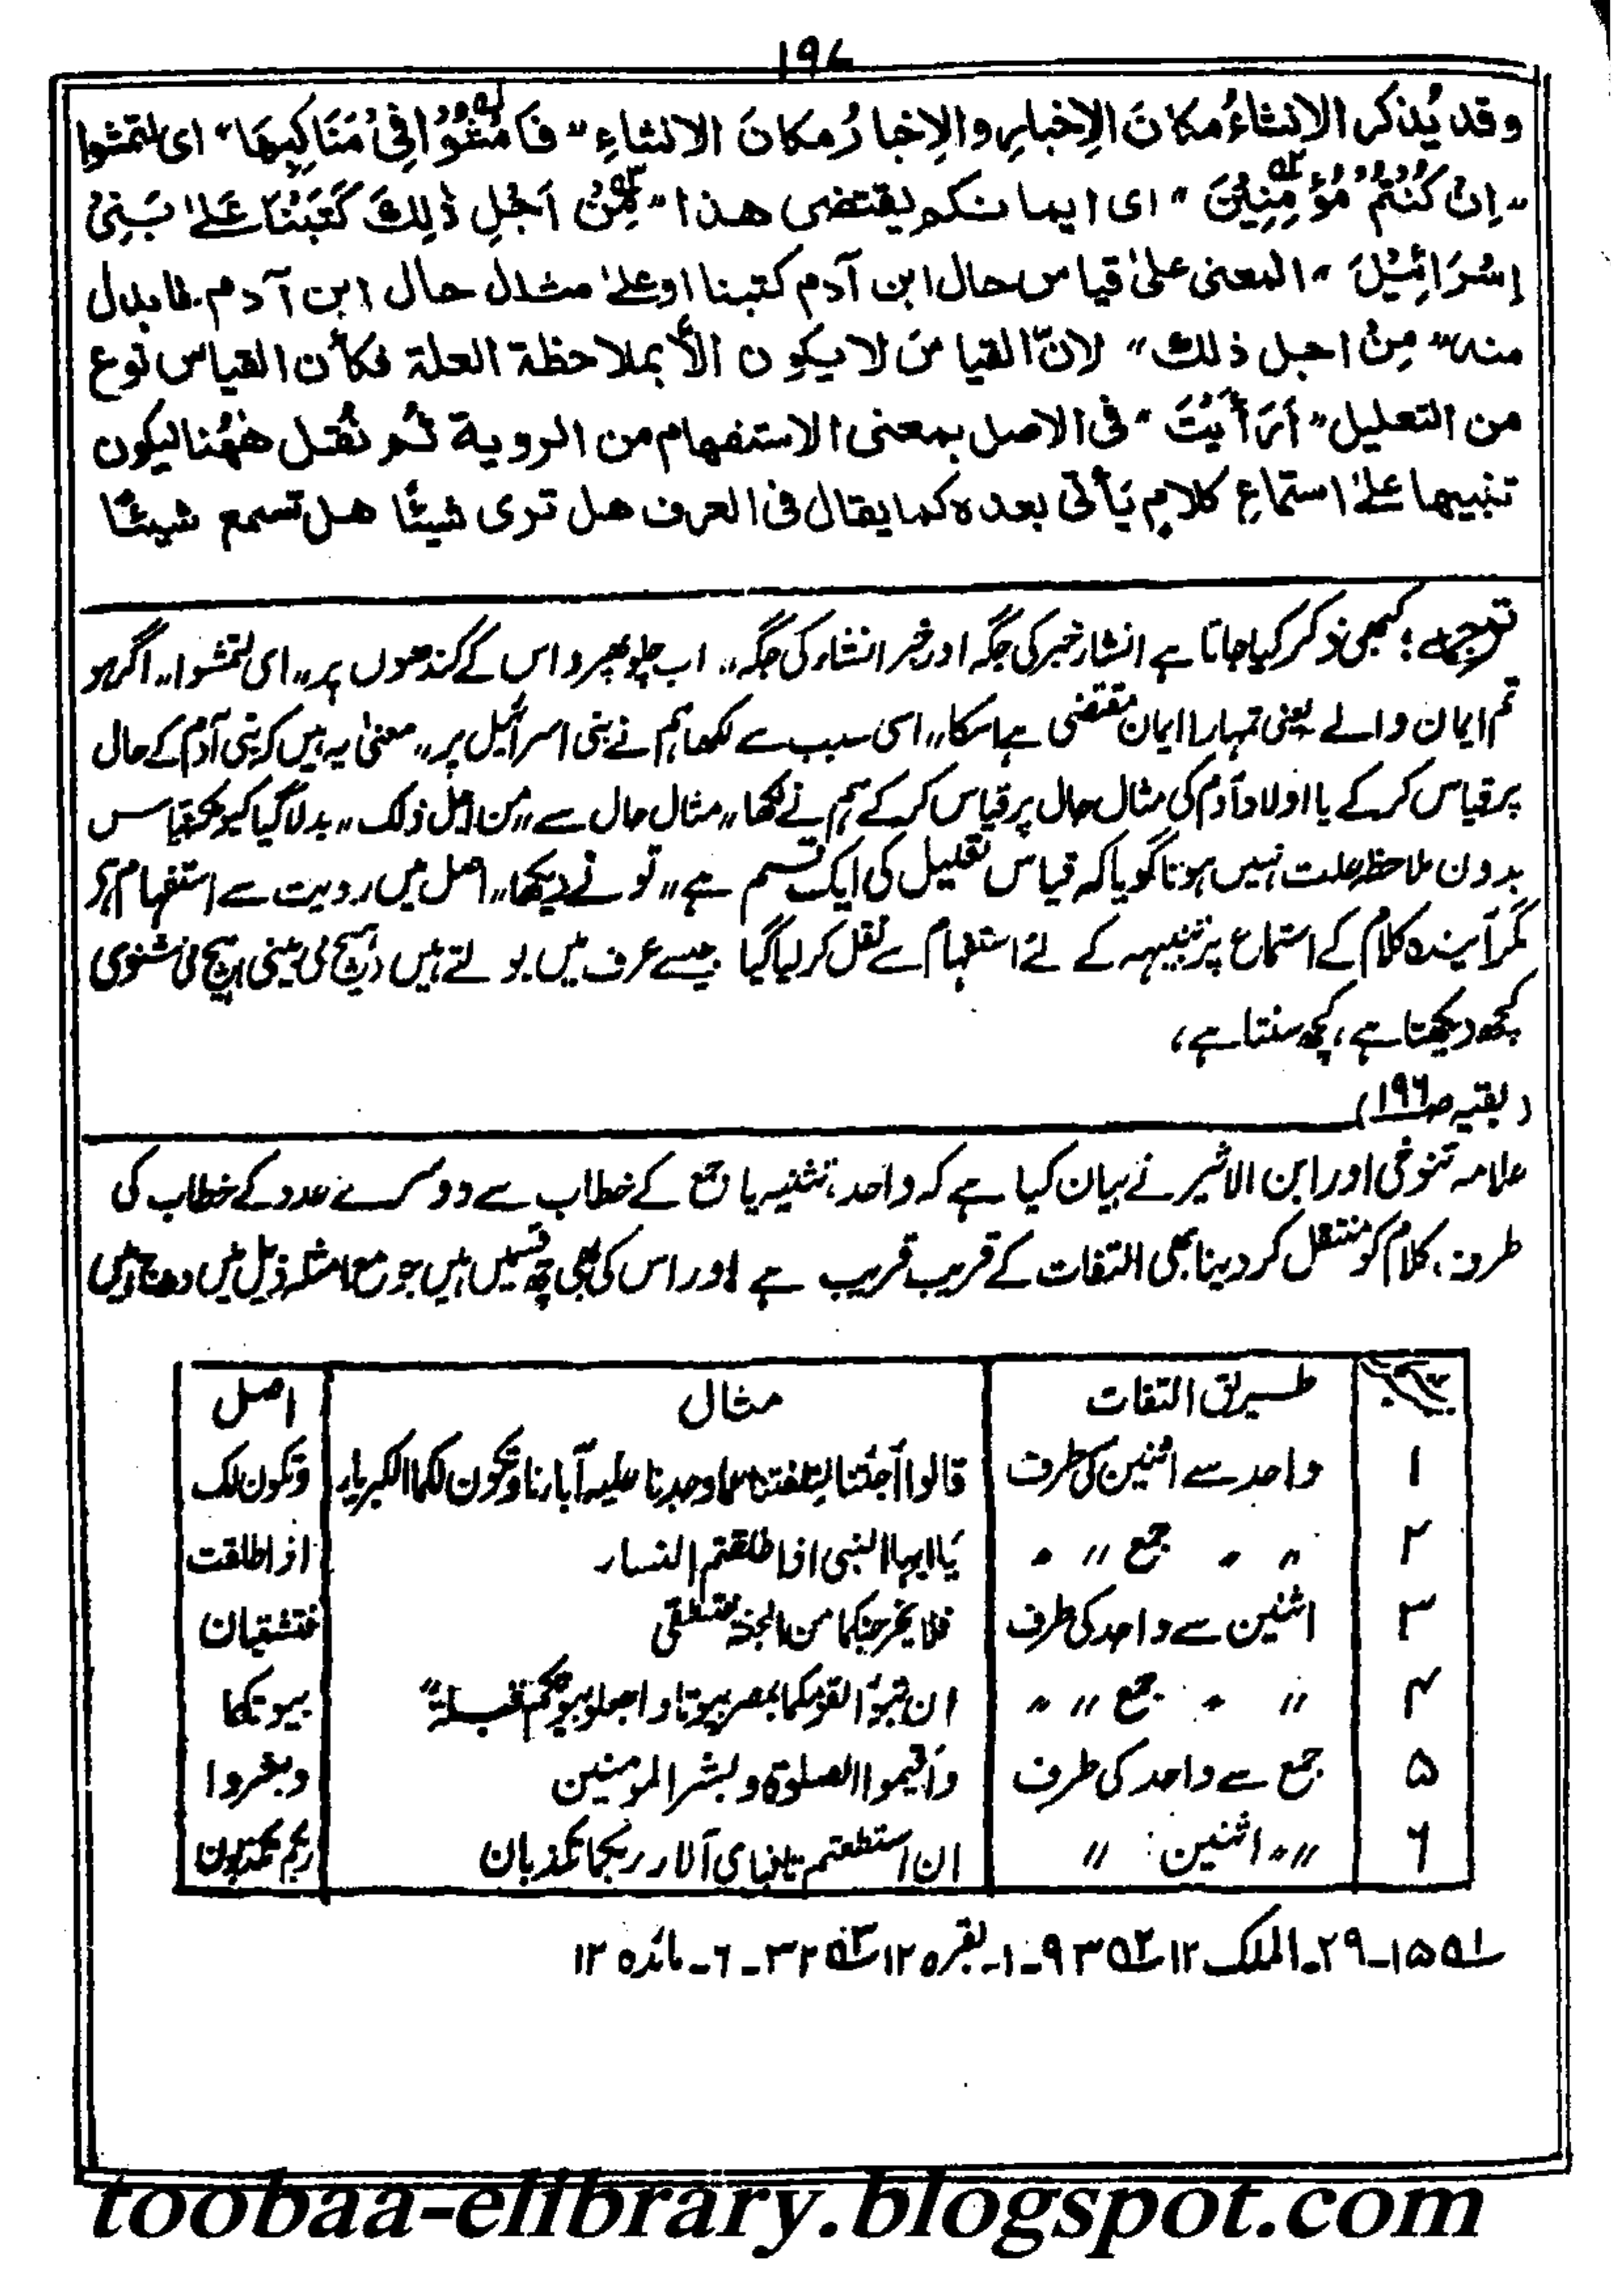 ۱۹۷
وقد یُذکر الانشاءُ مکانَ الإخبارِ والإخبارُ مکانَ الانشاءِ "فَامْشُوْا فِیْ مَنَاکِبِهَا" ای لتمشوا
"اِنْ کُنْتُمْ مُؤْمِنِیْنَ" ای ایمانکم یقتضی هذا "مِنْ اَجْلِ ذٰلِكَ کَتَبْنَا عَلٰے بَنِیْ
اِسْرَائِیْلَ" المعنی علیٰ قیاس حال ابن آدم کتبنا اوعلےٰ مثال حال ابن آدم. فابدال
منه "مِنْ اجل ذلك" لانّ القیاسَ لا یکون الأبملاحظة العلة فکأن القیاس نوع
من التعلیل "أرَأَیْتَ" فی الاصل بمعنی الاستفهام من الرویة ثم نُقل هٰهُنا لیکون
تنبیها علےٰ استماعِ کلامٍ یَأتی بعده کما یقال فی العرف هل تری شیئًا هل تسمع شیئًا
ترجمہ؛ کبھی ذکر کیا جاتا ہے انشاء خبر کی جگہ اور خبر انشاء کی جگہ،، اب چلو پھرو اس کے کندھوں پر،، ای لتمشوا،، اگر ہو
تم ایمان والے یعنی تمہارا ایمان مقتضی ہے اسکا،، اسی سبب سے لکھا ہم نے بنی اسرائیل پر،، معنیٰ یہ ہیں کہ بنی آدم کے حال
پر قیاس کر کے یا اولاد آدم کی مثال حال پر قیاس کر کے ہم نے لکھا،، مثال حال سے،، من اجل ذلک،، بدلا گیا کیونکہ قیاس
بدون ملاحظہ علت نہیں ہوتا گویا کہ قیاس تعلیل کی ایک قسم ہے،، تو نے دیکھا،، اصل میں رویت سے استفہام ہے
مگر آیندہ کلام کے استماع پر تنبیہہ کے لئے استفہام سے نقل کر لیا گیا جیسے عرف میں بولتے ہیں (ہیچ می بینی ہیچ می شنوی
کچھ دیکھتا ہے، کچھ سنتا ہے،
(بقیہ ص ۱۹۶)
علامہ تنوخی اور ابن الاثیر نے بیان کیا ہے کہ واحد، تثنیہ یا جمع کے خطاب سے دوسرے عدد کے خطاب کی
طرف، کلام کو منتقل کر دینا بھی التفات کے قریب قریب ہے اور اس کی بھی چھ قسمیں ہیں جو مع امثلہ ذیل میں درج ہیں
طریق التفات مثال اصل
۱ واحد سے اثنین کی طرف قالوا أجئتنا لتلفتنا عما وجدنا علیہ آباءنا وتکون لکما الکبریاء وتکون لک
۲ " " جمع " " یا ایہا النبی اذا طلقتم النساء اذا طلقت
۳ اثنین سے واحد کی طرف فلا یخرجنکما من الجنة فتشقی فتشقیان
۴ " " جمع " " ان تبوّا لقومکما بمصر بیوتا واجعلوا بیوتکم قبلة" بیوتکما
۵ جمع سے واحد کی طرف وأقیموا الصلوٰة وبشر المومنین وبشروا
۶ " " اثنین " ان استطعتم تا فبای آلاء ربکما تکذبان ربکم تکذبون
۱؎ ۱۵-۲۹-الملک ۱۲ ۲؎ ۹۳-۱-بقرہ ۱۲ ۳؎ ۳۲-۶-مائدہ ۱۲
toobaa-elibrary.blogspot.com